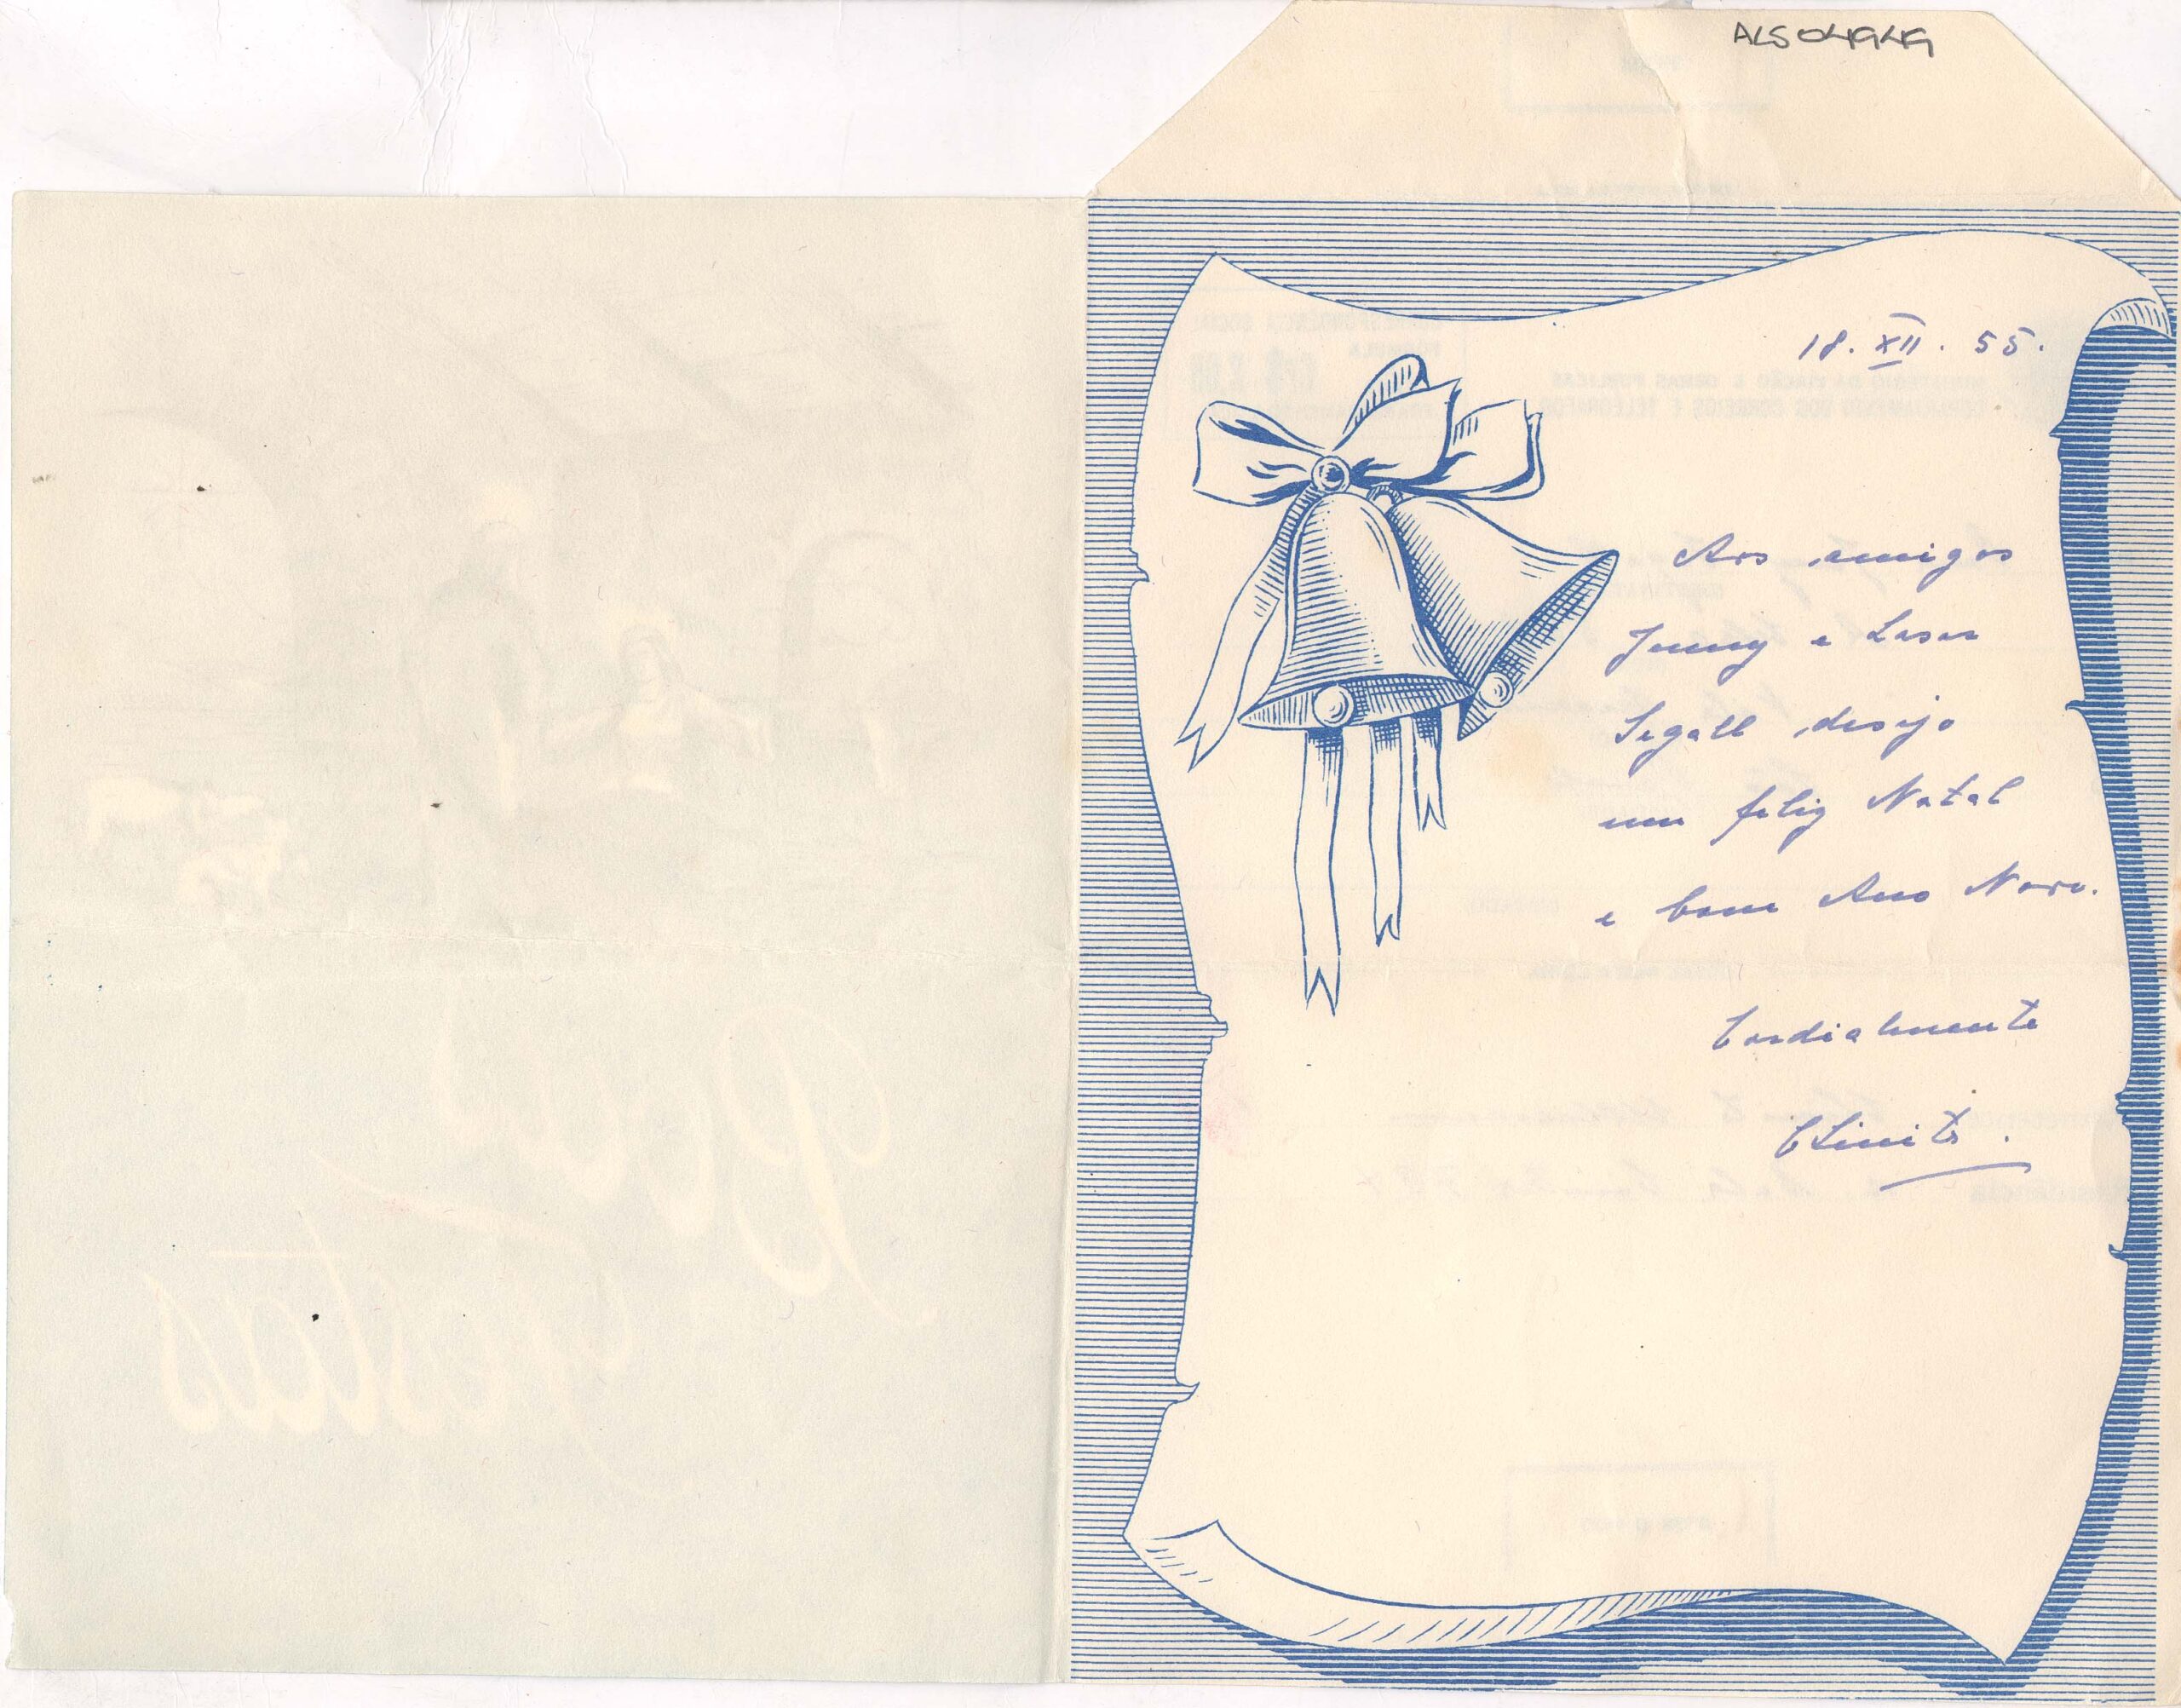 ALS 04949
18. XII. 55.
Aos amigos
Jenny e Lasar
Segall desejo
um feliz Natal
e bom Ano Novo.
Cordialmente
Boas
Festas